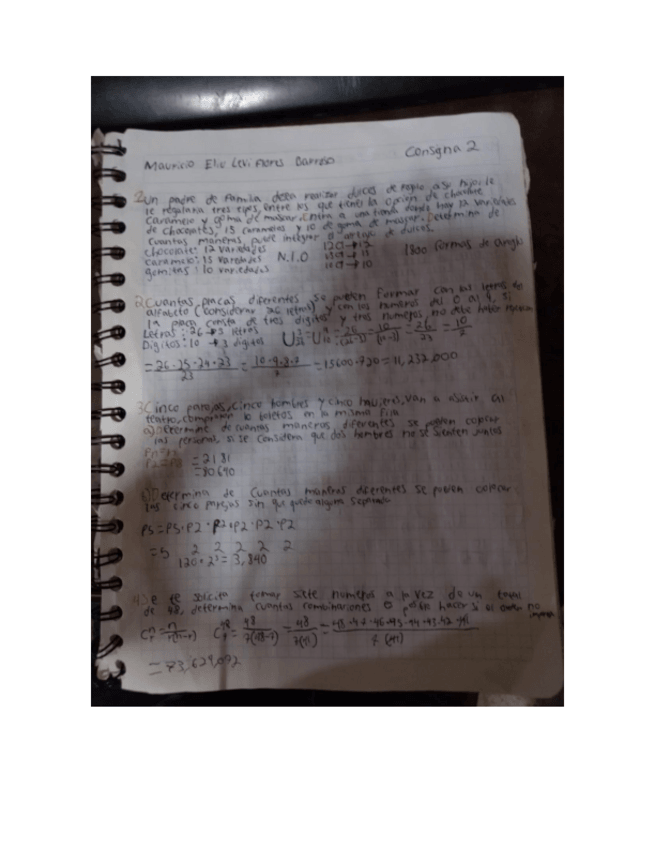 Mauricio Eliu Levi Flores Barroso Consgna 2
un padre de familia desea realizar dulces de regalo a su hijo: le
le regalaria tres tipos, entre los que tiene la opcion de chocolate
caramelo y goma de mascar. Entra a una tienda donde hay 12 variedades
de chocolates, 15 caramelos y 10 de goma de mascar. Determina de
cuantas maneras puede integrar el arreglo de dulces.
chocolate: 12 variedades 12C1 → 12 1800 formas de
caramelo: 15 variedades N.I.O 15C1 → 15
gomitas: 10 variedades 10C1 → 10
2. Cuantas placas diferentes se pueden formar con las letras del
alfabeto (considerar 26 letras) y con los numeros del 0 al 9, si
la placa consta de tres digitos y tres numeros, no debe haber
Letras: 26 → 3 letras
Digitos: 10 → 3 digitos
= 26·25·24·23 / 23 = 10·9·8·7 / 7 = 15600·720 = 11,232,000
3. Cinco parejas, cinco hombres y cinco mujeres, van a asistir al
teatro, compraron 10 boletos en la misma fila
a) Determine de cuantas maneras diferentes se pueden colocar
las personas, si se considera que dos hombres no se sienten juntos
= 2!8!
= 80640
b) Determina de cuantas maneras diferentes se pueden colocar
las cinco parejas sin que quede alguna separada
P5 = P5·P2·P2·P2·P2·P2
= 5 2 2 2 2 2
120 · 2⁵ = 3,840
4. Se te solicita tomar siete numeros a la vez de un total
de 48, determina cuantas combinaciones puedes hacer si el orden no
importa
= 73,629,072